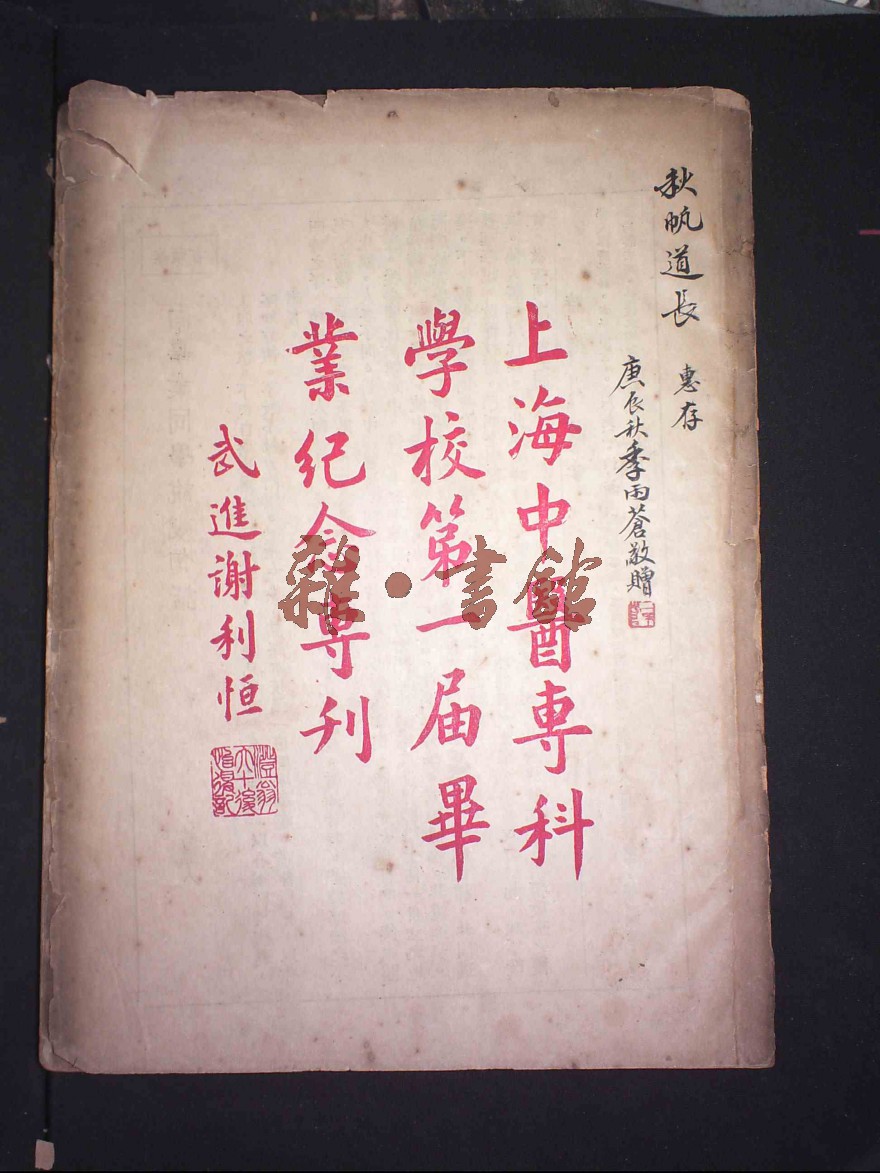 秋帆道長
惠存
庚辰秋季雨蒼敬贈
上海中醫專科
學校第一届畢
業纪念專刊
武進谢利恒
澄翁六十後
雜·書館